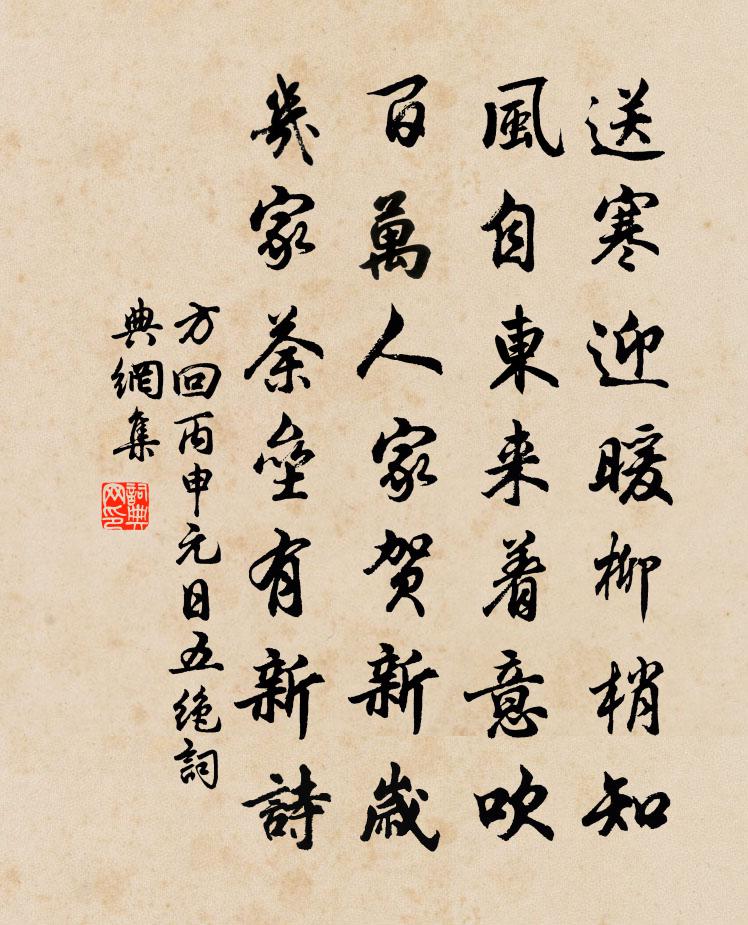 送寒迎暖柳梢知
風自東来着意吹
百萬人家賀新歲
幾家荼垒有新詩
方回丙申元日五絶詞
典網集
詞典网印